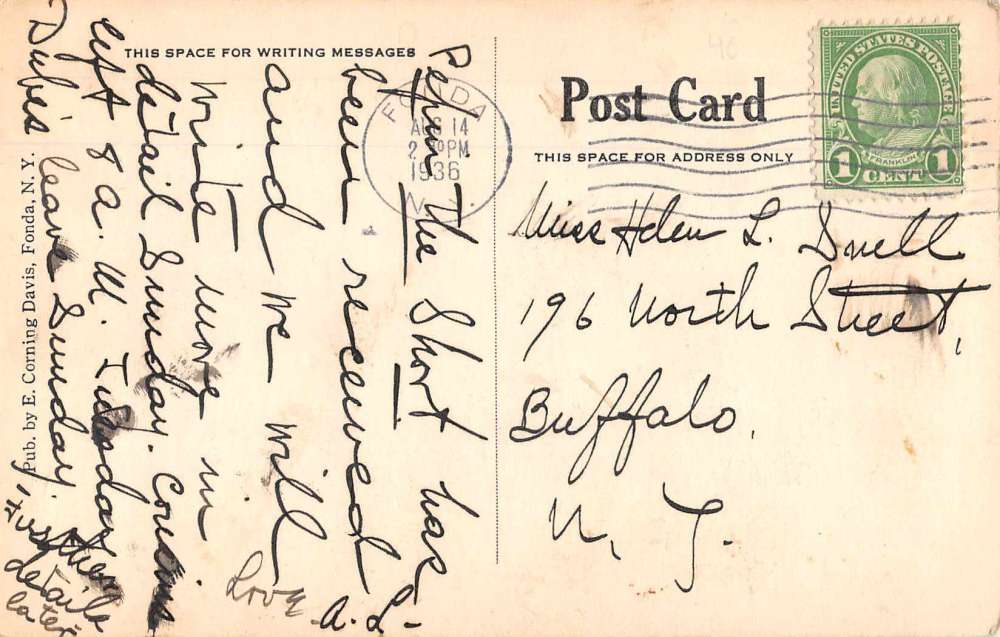 THIS SPACE FOR WRITING MESSAGES
Pepin The Short has
been received
and we will
write more in
detail Sunday. Cousins
left 8 a.m. Tuesday.
Dube's leave Sunday.
Further
details
later
Love
A.L.
Pub. by E. Corning Davis, Fonda, N. Y.
FONDA
AUG 14
2 PM
1936
N.
Post Card
THIS SPACE FOR ADDRESS ONLY
UNITED STATES POSTAGE
FRANKLIN
1 CENT 1
Miss Helen L. Snell
196 North Street,
Buffalo,
N. Y.
40